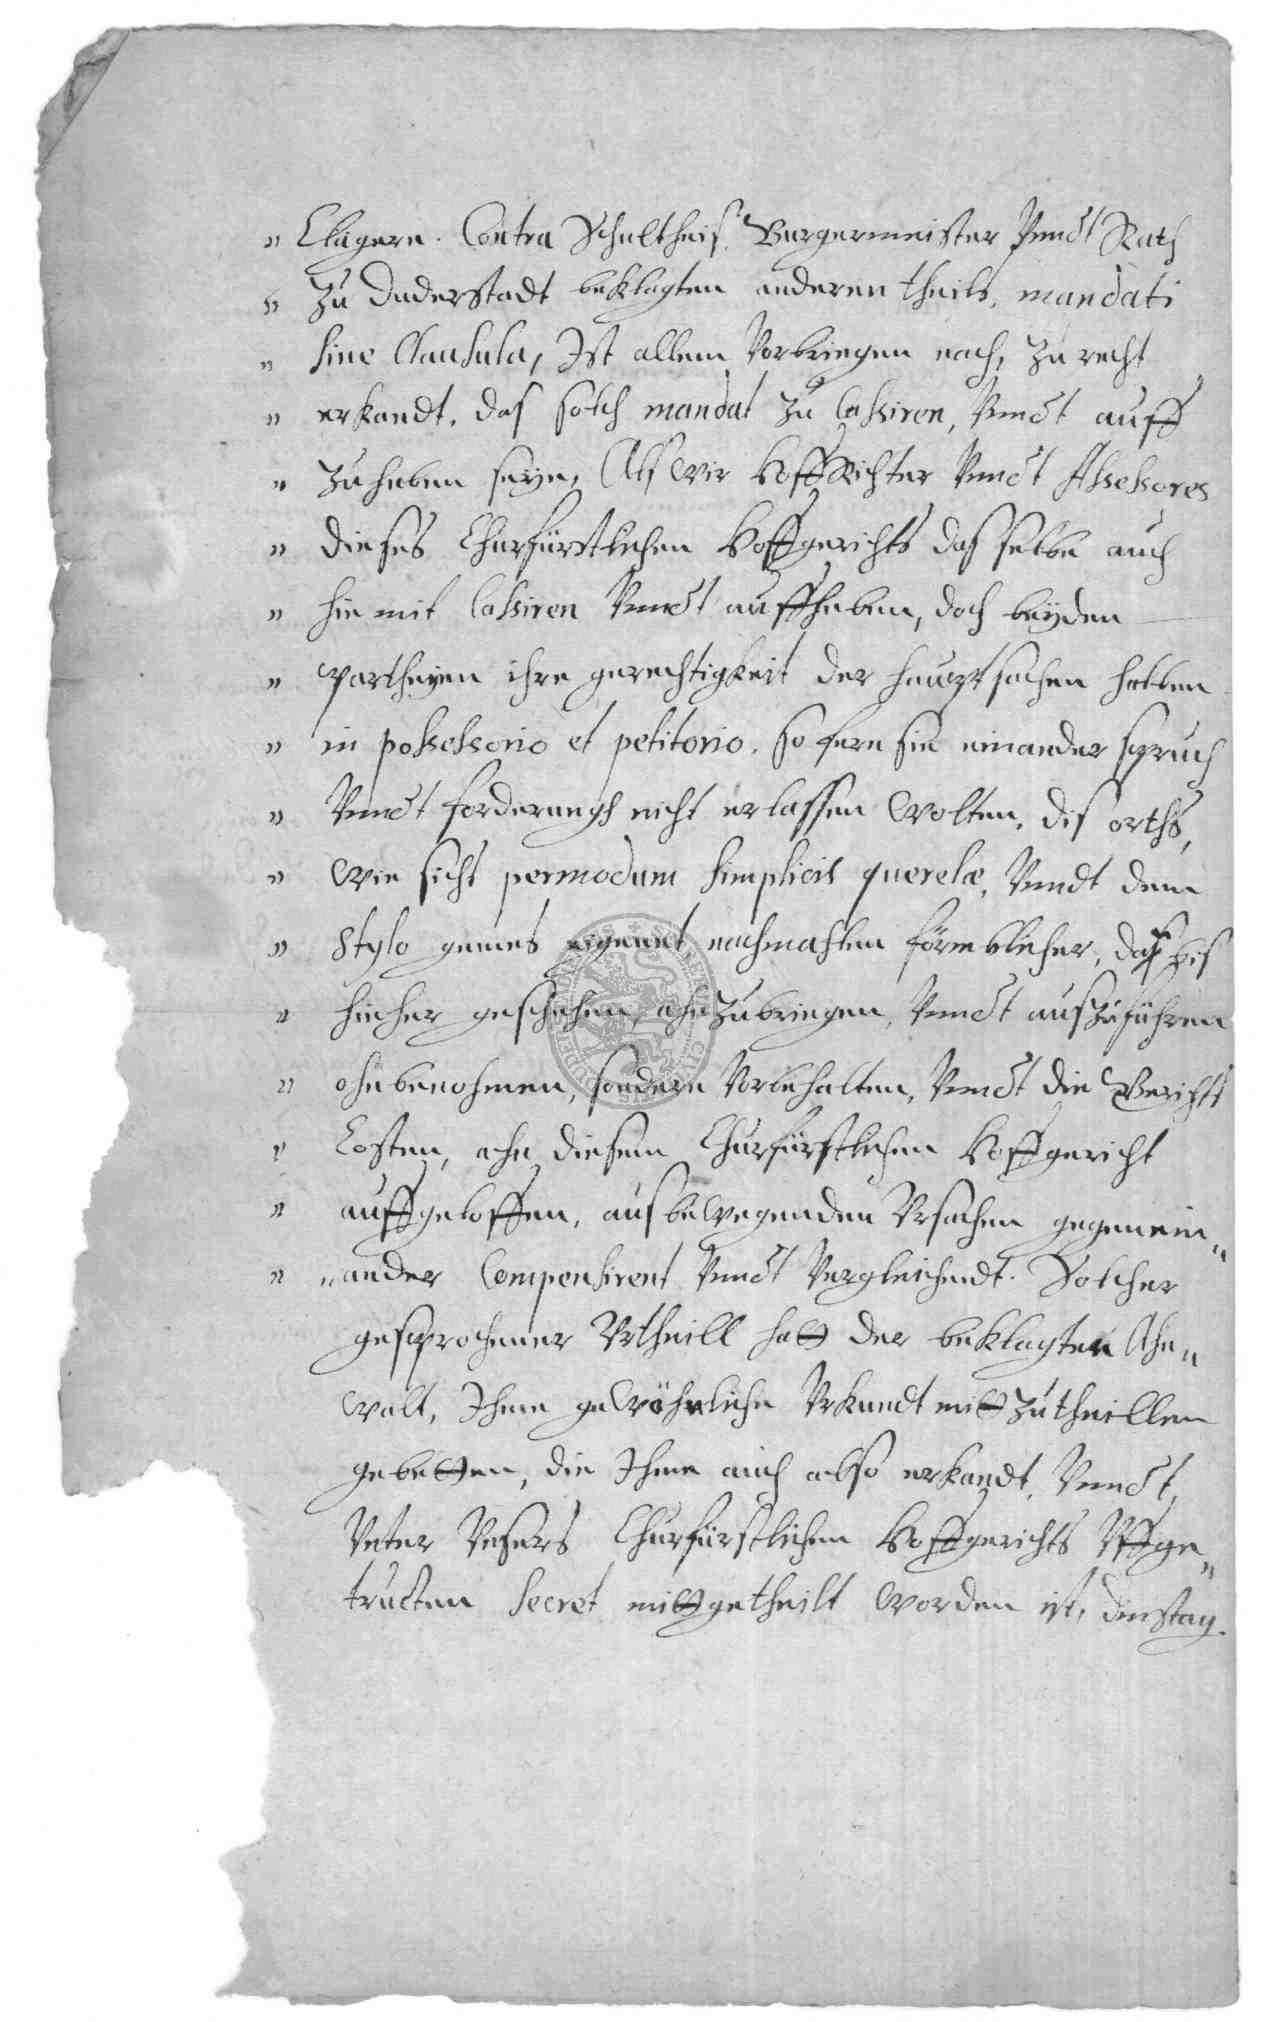 " Clägern. Contra Schultheis, Burgermeister Vnndt Rath
" Zu Duderstadt beklagten anderen theils, mandati
" sine Clausula, Ist allem Vorbringen nach, zu recht
" erkandt, das solch mandat zu Cassiren, Vnndt auff
" zuheben seye, Als wir HoffRichter Vnndt Assessores
" dieses Churfürstlichen Hoffgerichts das selbe auch
" hiemit Cassiren Vnndt auffheben, doch beyden
" Partheyen ihre gerechtigkeit der hauptsachen halben
" in possessorio et petitorio. so fern sie einander spruch
" Vnndt forderungs nicht erlassen wolten, dis orths,
" wie sichs permodum simplicis querelæ, Vnndt dem
" Stylo gemes eigennt nachmahlen förmblicher, das bis
" hieher geschehen, ahnzubringen, Vnndt auszuführen
" ohnbenohmen, sondern Vorbehalten, Vnndt die Gerichts
" Costen, ahn diesem Churfürstlichen Hoffgericht
" auffgeloffen, aus bewegenden Vrsachen gegenein"
" "ander Compensirent Vnndt Vergleichendt. Solcher
gesprochener Vrtheill hatt der beklagten Ahn"
walt, Ihme gewöhnliche Vrkundt mittzutheillen
gebetten, die Ihme auch also erkandt, Vnndt,
Vnter Vnsers Churfürstlichen Hoffgerichts Vffge"
tructen Secret mittgetheilt worden ist, dinstag.